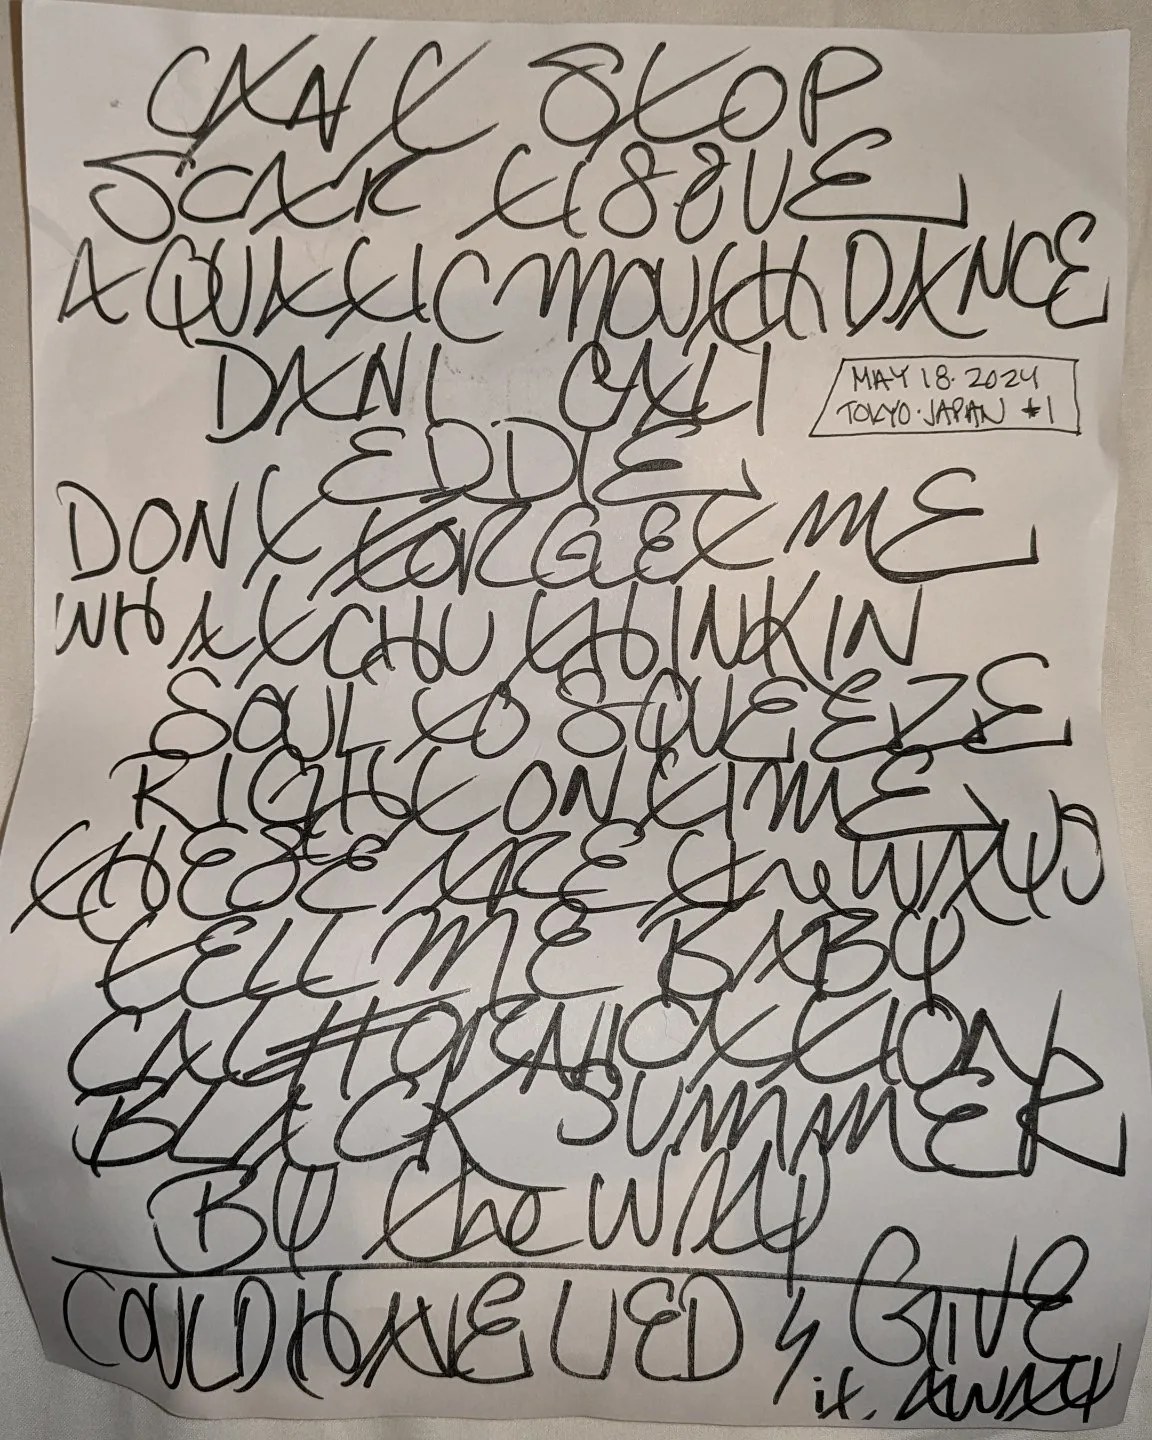 CAN'T STOP
SCAR TISSUE
AQUATIC MOUTH DANCE
DANI CALI
MAY 18.2024
TOKYO.JAPAN #1
EDDIE
DONT FORGET ME
WHATCHU THINKIN
SOUL TO SQUEEZE
RIGHT ON TIME
THESE ARE the WAYS
TELL ME BABY
CALIFORNICATION
BLACK SUMMER
BY the WAY
COULD HAVE LIED & GIVE
it. AWAY